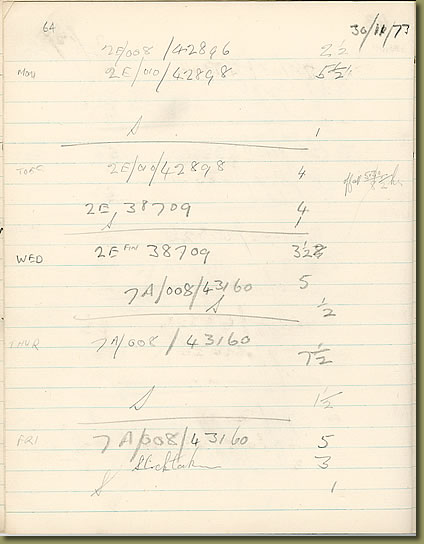 64 30/11/73
2E/008/42896 2½
MON 2E/010/42898 5½
S 1
TUES 2E/010/42898 4
2E, 38709 4
S 1
WED 2E 38709 3½
7A/008/43160 5
S ½
THUR 7A/008/43160 7½
S 1½
FRI 7A/008/43160 5
Stocktaken 3
S 1